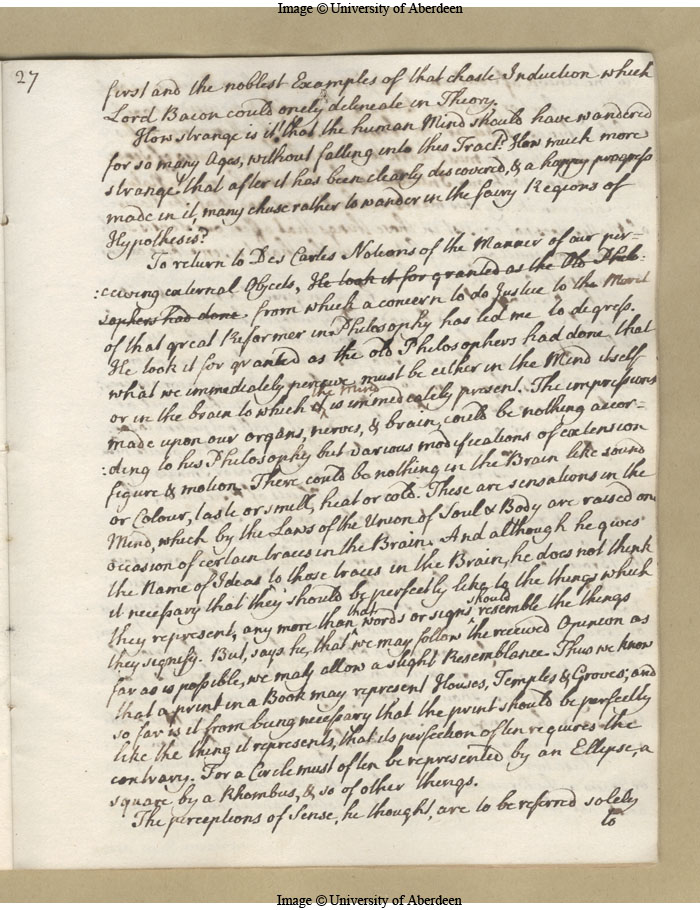 Image © University of Aberdeen
27
first and the noblest Examples of that chaste Induction which
Lord Bacon could onely delineate in Theory.
How strange is it that the human Mind should have wandered
for so many Ages, without falling into this Tract? How much more
strange! that after it has been clearly discovered, & a happy progress
made in it, many chuse rather to wander in the fairy Regions of
Hypothesis?
To return to Des Cartes Notions of the Manner of our per-
:ceiving external Objects, He took it for granted as the Old Philo-
sophers had done. from which a concern to do Justice to the Merit
of that great Reformer in Philosophy has led me to degress.
He took it for granted as the old Philosophers had done that
what we immediately perceive must be either in the Mind itself
or in the brain to which the Mind is immediately present. The impressions
made upon our organs, nerves, & brain, could be nothing accor-
:ding to his Philosophy but various modifications of extension
figure & motion. There could be nothing in the Brain like sound
or Colour, taste or smell, heat or cold. These are sensations in the
Mind, which by the Laws of the Union of Soul & Body are raised on
occasion of certain traces in the Brain. And although he gives
the Name of Ideas to those traces in the Brain, he does not think
it necessary that they should be perfectly like to the things which
they represent, any more than that words or signs should resemble the things
they signify. But, says he, that we may follow the received Openion as
far as is possible, we may allow a slight Resemblance. Thus we know
that a print in a Book may represent Houses, Temples & Groves; and
so far is it from being necessary that the print should be perfectly
like the thing it represents, that its perfection often requires the
contrary. For a Circle must often be represented by an Ellipse, a
square by a Rhombus, & so of other things.
The perceptions of Sense, he thought, are to be referred solely
to
Image © University of Aberdeen